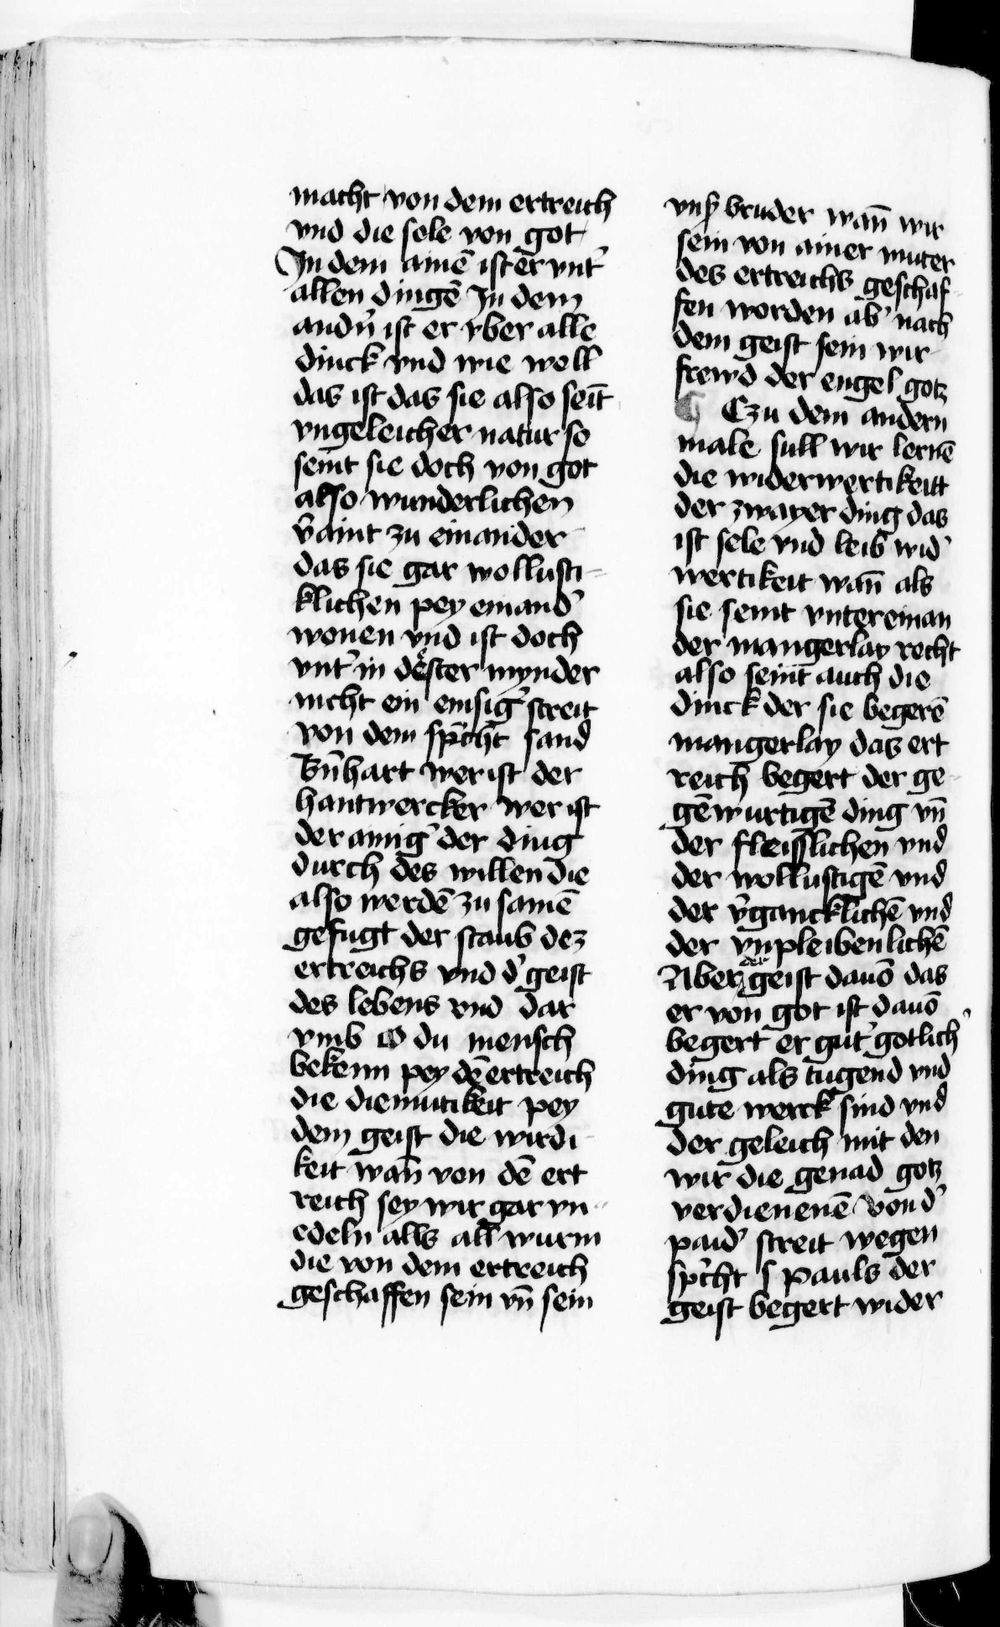 macht von dem ertreich
vnd die sele von got
In dem ainē ist er vnt̉
allen dingē In dem
andn̉ ist er vber alle
dinck vnd wie woll
das ist das sie also seīt
vngeleicher natur so
seint sie doch von got
also wunderlichen
v̄aint zu einander
das sie gar wollusti-
klichen pey einand̉
wonen vnd ist doch
vnt̉ in dester mynder
nicht ein einsig̉ streit
von dem sp̄cht sand
Bn̄hart wer ist der
hantwercker wer ist
der ainig̉ der ding
durch des willen die
also werdē zu samē
gefugt der staub dez
ertreichs vnd d̉ geist
des lebens vnd dar
vmb O du mensch
bekenn pey dē ertreich
die diemutikeit pey
dem geist die wirdi
keit wañ von dē ert
reich sey wir gar vn-
edeln alls all wurm
die von dem ertreich
geschaffen sein vn̄ sein
vns̉ bruder wañ wir
sein von ainer muter
des ertreichs geschaf-
fen worden ab̉ nach
dem geist sein wir
frewd der engel gotz
Czu dem andern
male sull wir lernē
die widerwertikeitt
der zwayer ding das
ist sele vnd leib wid̉
wertikeit wañ als
sie seint vntereinan
der mangerlay recht
also seint auch die
dinck der sie begerē
mangerlay das ert
reich begert der ge-
gēwurtigē ding vn̄
der fleisslichen vnd
der wollustigē vnd
der v̄gancklichē vnd
der vnpleibenlichē
Aber der geist dauō das
er von got ist dauō
begert er gut̉ gotlich̉
ding als tugend vnd
gute werck sind vnd
der geleich mit den
wir die genad gotz
verdienenē von d̉
paid̉ streit wegen
sp̄cht s Pauls der
geist begert wider